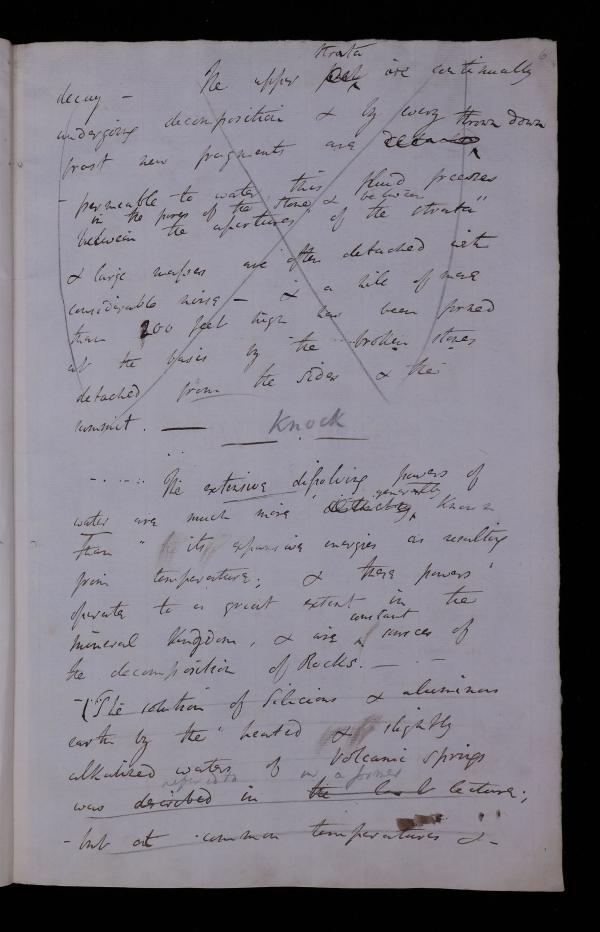 strata
decay - The upper are continually
undergoing decomposition & by every thrown down
frost new fragments are
- permeable to water, this fluid freezes
in the pores of the stone & between
between the apertures of the strata
& large masses are often detached with
considerable noise - & a hill of more
than 200 feet high has been formed
at the basis by the broken stones
detached from the sides & the
summit. —
Knock
The extensive dissolving powers of
generally
water are much more known
than its expansive energies as resulting
from temperature; & these powers
operate to a great extent in the
constant
mineral kingdom, & are sources of
the decomposition of Rocks. -
- (The solution of Silicious & aluminous
earth by the heated & slightly
alkalized waters of Volcanic Springs
referred to in a former
was described in the last lecture;
- but at common temperatures &-